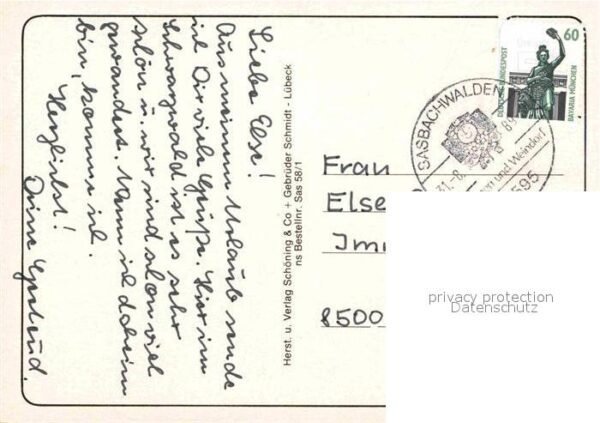 Liebe Else!
Aus meinem Urlaub sende
ich Dir viele Grüße. Hier im
Schwarzwald ist es sehr
schön u. wir sind schon viel
gewandert. Wenn ich daheim
bin, komme ich.
Herzlichst!
Deine
Herst. u. Verlag Schöning & Co + Gebrüder Schmidt - Lübeck
ns Bestellnr. Sas 58/1
60
DEUTSCHE BUNDESPOST
BAVARIA MÜNCHEN
SASBACHWALDEN
31.-8. 89
und Weindorf
595
Frau
Else
Imm
8500
privacy protection
Datenschutz